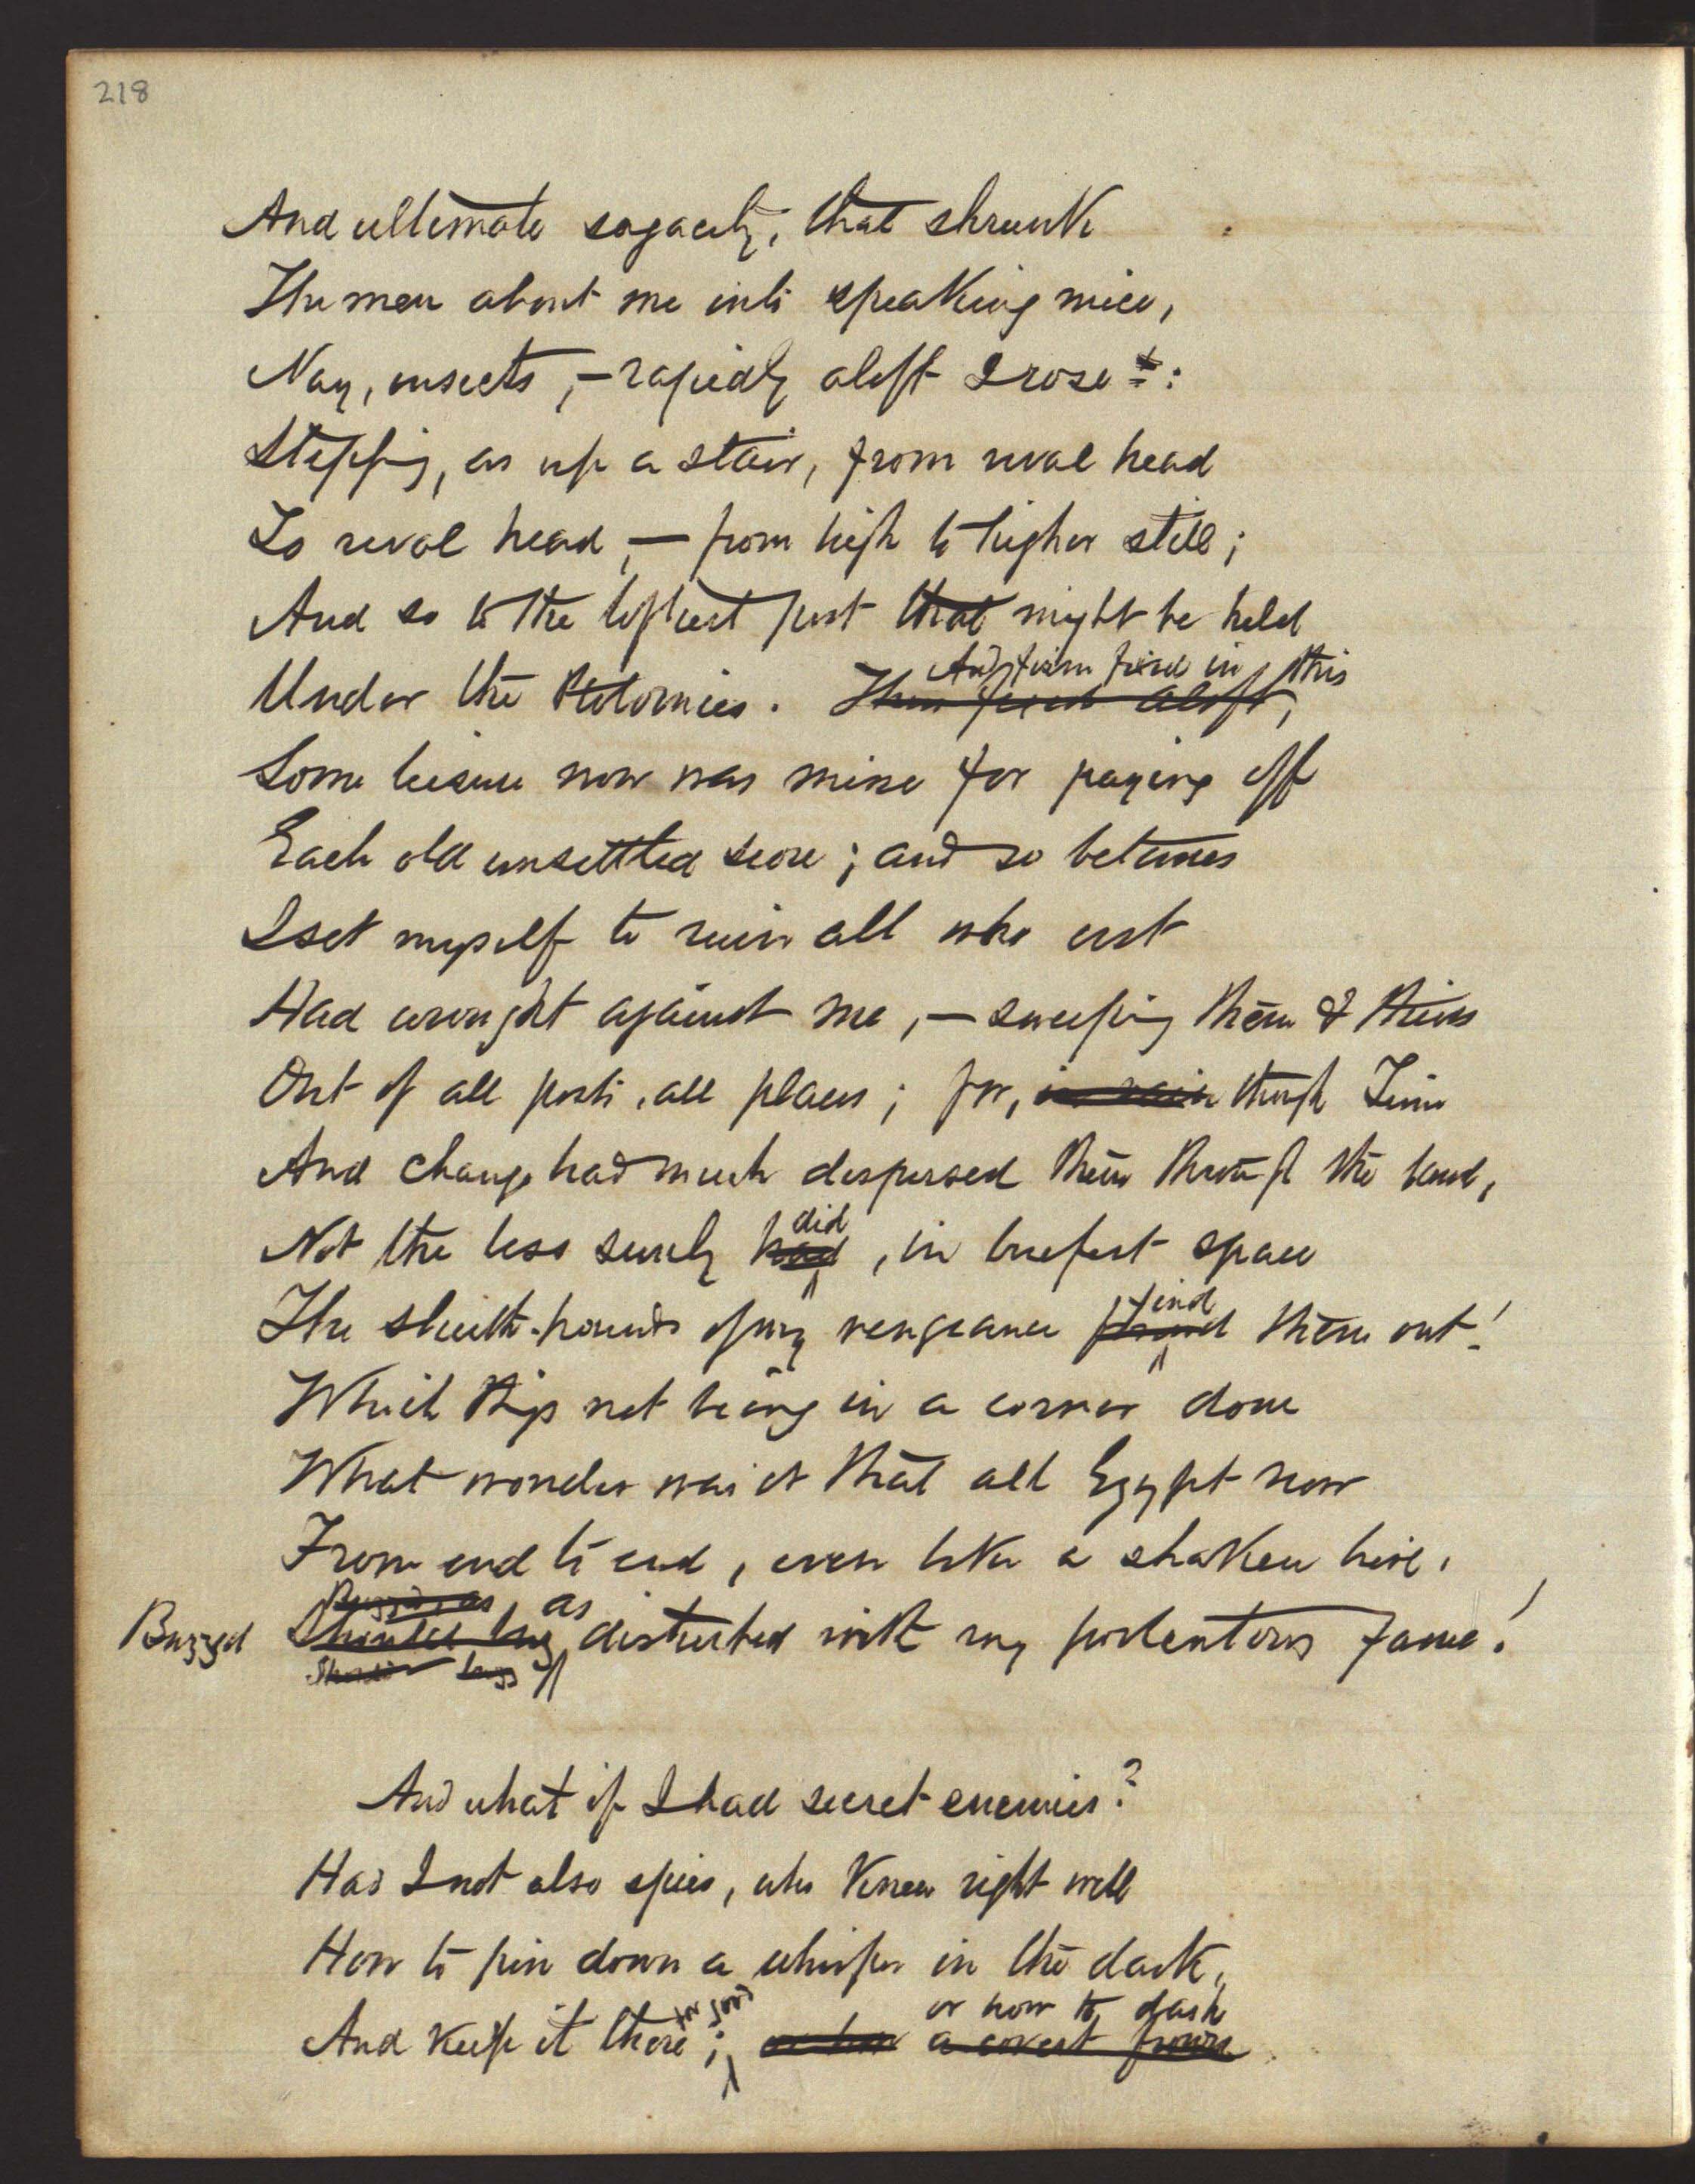 218
And ultimate sagacity, that shrunk
The men about me into speaking mice,
Nay, insects, – rapidly aloft I rose:
Stepping, as up a stair, from rival head
To rival head, – from high to higher still;
And so to the loftiest post that might be held
And, firm fixed in this
Under the Ptolomies. Then fixed aloft,
Some leisure now was mine for paying off
Each old unsettled score; and so betimes
I set myself to ruin all who erst
Had wrought against me, – sweeping them & theirs
Out of all posts, all places; for, in vain though Time
And change had much dispersed them through the land,
did
Not the less surely had, in briefest space
find
The sleuth-hounds of my vengeance found them out!
Which things not being in a corner done
What wonder was it that all Egypt now
From end to end, even like a shaken hive,
Buzzing as, as
Buzzed Should buzz disturbed with my portentous fame!
Should buzz
And what if I had secret enemies?
Had I not also spies, who knew right well
How to pin down a whisper in the dark,
for good or how to dash
And keep it there; or how a covert frown